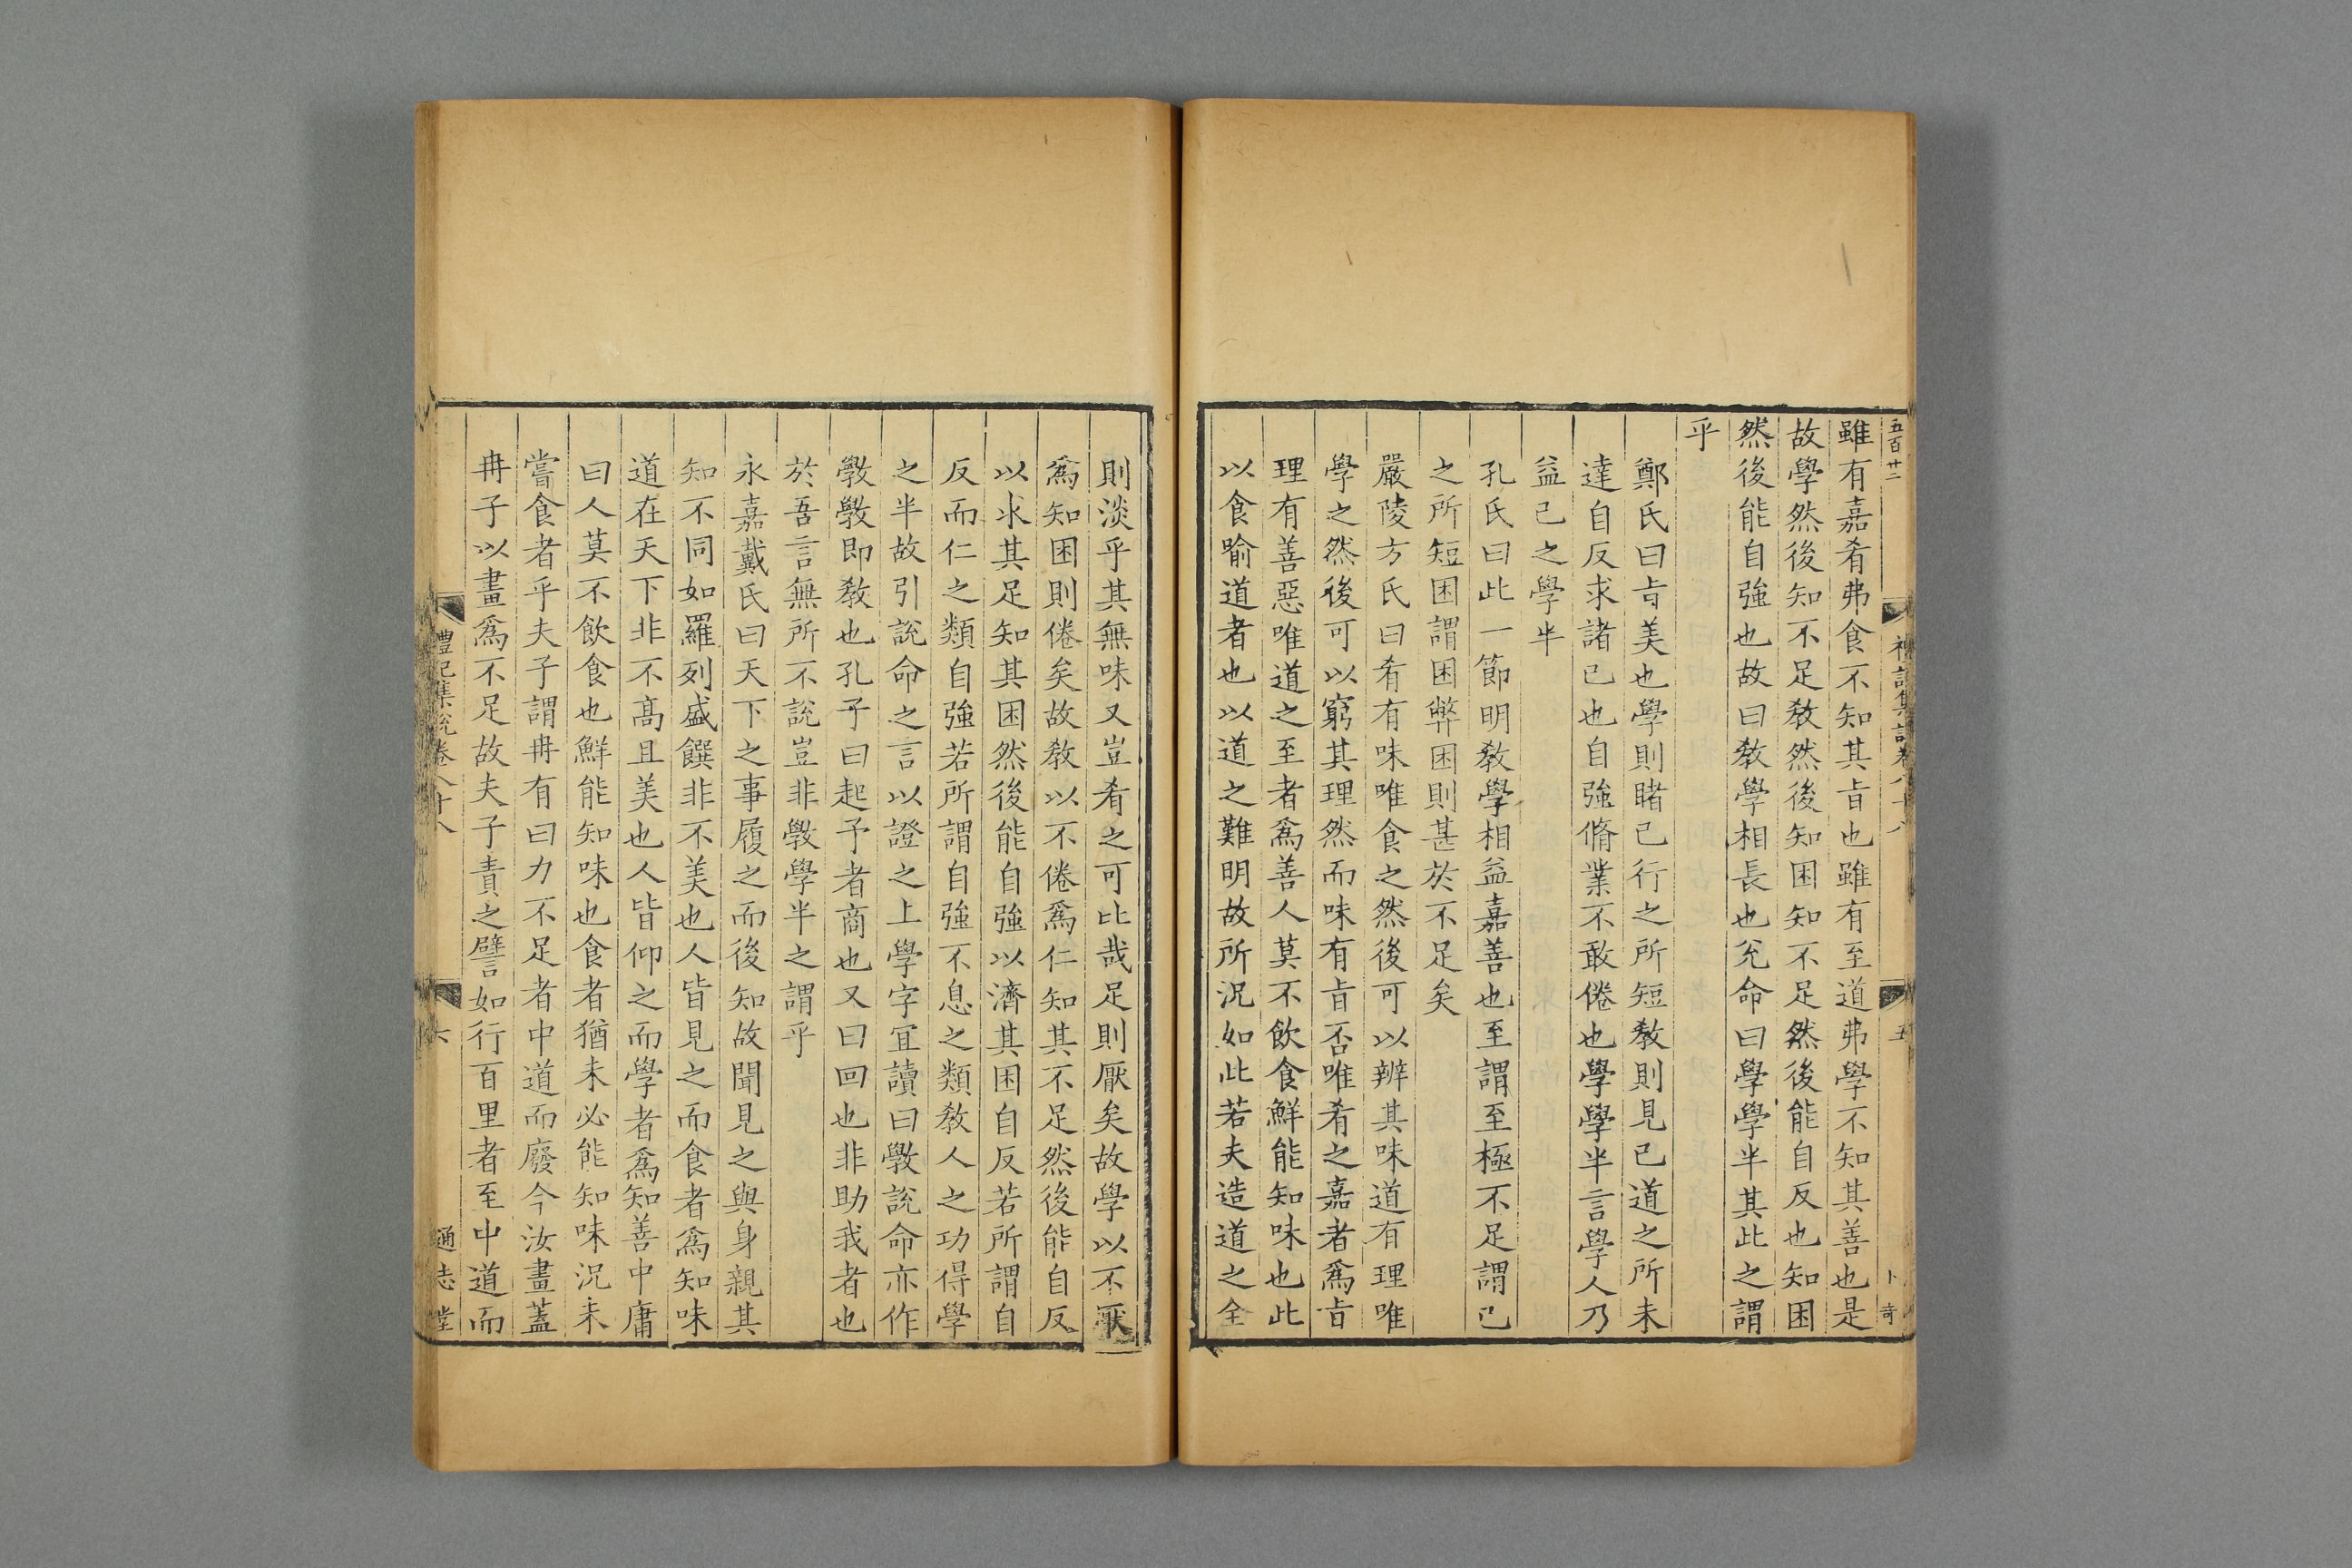 五百廿二
禮記集說卷八十八
五
卜奇
雖有嘉肴弗食不知其㫖也雖有至道弗學不知其善也是
故學然後知不足敎然後知困知不足然後能自反也知困
然後能自強也故曰敎學相長也兊命曰學學半其此之謂
乎
鄭氏曰㫖美也學則睹己行之所短敎則見己道之所未
達自反求諸己也自強脩業不敢倦也學學半言學人乃
益己之學半
孔氏曰此一節明敎學相益嘉善也至謂至極不足謂己
之所短困謂困弊困則甚於不足矣
嚴陵方氏曰肴有味唯食之然後可以辨其味道有理唯
學之然後可以窮其理然而味有㫖否唯肴之嘉者爲㫖
理有善惡唯道之至者爲善人莫不飲食鮮能知味也此
以食喻道者也以道之難明故所況如此若夫造道之全
則淡乎其無味又豈肴之可比哉足則厭矣故學以不厭
爲知困則倦矣故敎以不倦爲仁知其不足然後能自反
以求其足知其困然後能自強以濟其困自反若所謂自
反而仁之類自強若所謂自強不息之類敎人之功得學
之半故引說命之言以證之上學字宜讀曰斆說命亦作
斆斆即敎也孔子曰起予者商也又曰回也非助我者也
於吾言無所不說豈非斆學半之謂乎
永嘉戴氏曰天下之事履之而後知故聞見之與身親其
知不同如羅列盛饌非不美也人皆見之而食者爲知味
道在天下非不高且美也人皆仰之而學者爲知善中庸
曰人莫不飲食也鮮能知味也食者猶未必能知味況未
嘗食者乎夫子謂冉有曰力不足者中道而廢今汝畫蓋
冉子以畫爲不足故夫子責之譬如行百里者至中道而
禮記集說卷八十八
六
通志堂